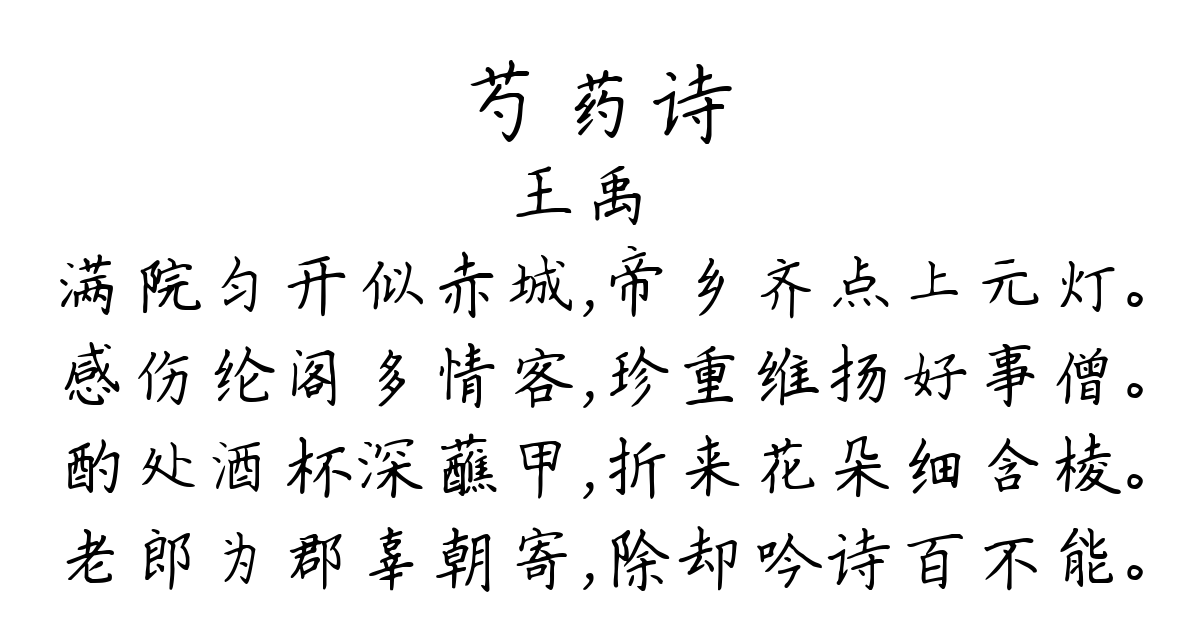 芍药诗
王禹
满院匀开似赤城,帝乡齐点上元灯。
感伤纶阁多情客,珍重维扬好事僧。
酌处酒杯深蘸甲,折来花朵细含棱。
老郎为郡辜朝寄,除却吟诗百不能。